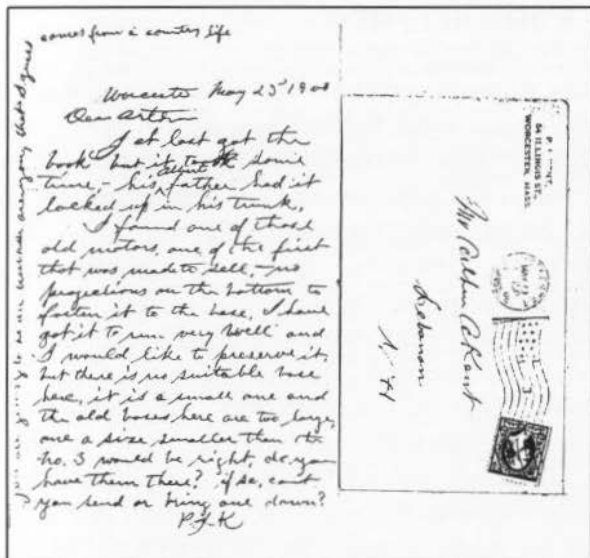 comes from a country life
Worcester May 23rd 1900
Dear Arthur
I at last got the
book but it took some
time, – his Albert father had it
locked up in his trunk.
I found one of those
old motors, one of the first
that was made to sell, – no
projections on the bottom to
fasten it to the base, I have
got it to run very well and
I would like to preserve it,
but there is no suitable base
here, it is a small one and
the old bases here are too large,
one a size smaller than the
no. 3 would be right, do you
have them there? if so, cant
you send or bring one down?
P.F.K
you are going to be an
that I guess
54 ILLINOIS ST.,
WORCESTER, MASS.
Mr Arthur A Kent
Lebanon
N. H